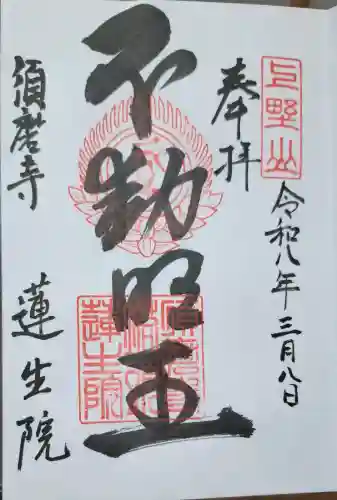 上野山
令和八年三月八日
奉拝
不動明王
蓮生院
須磨寺
蓮生院